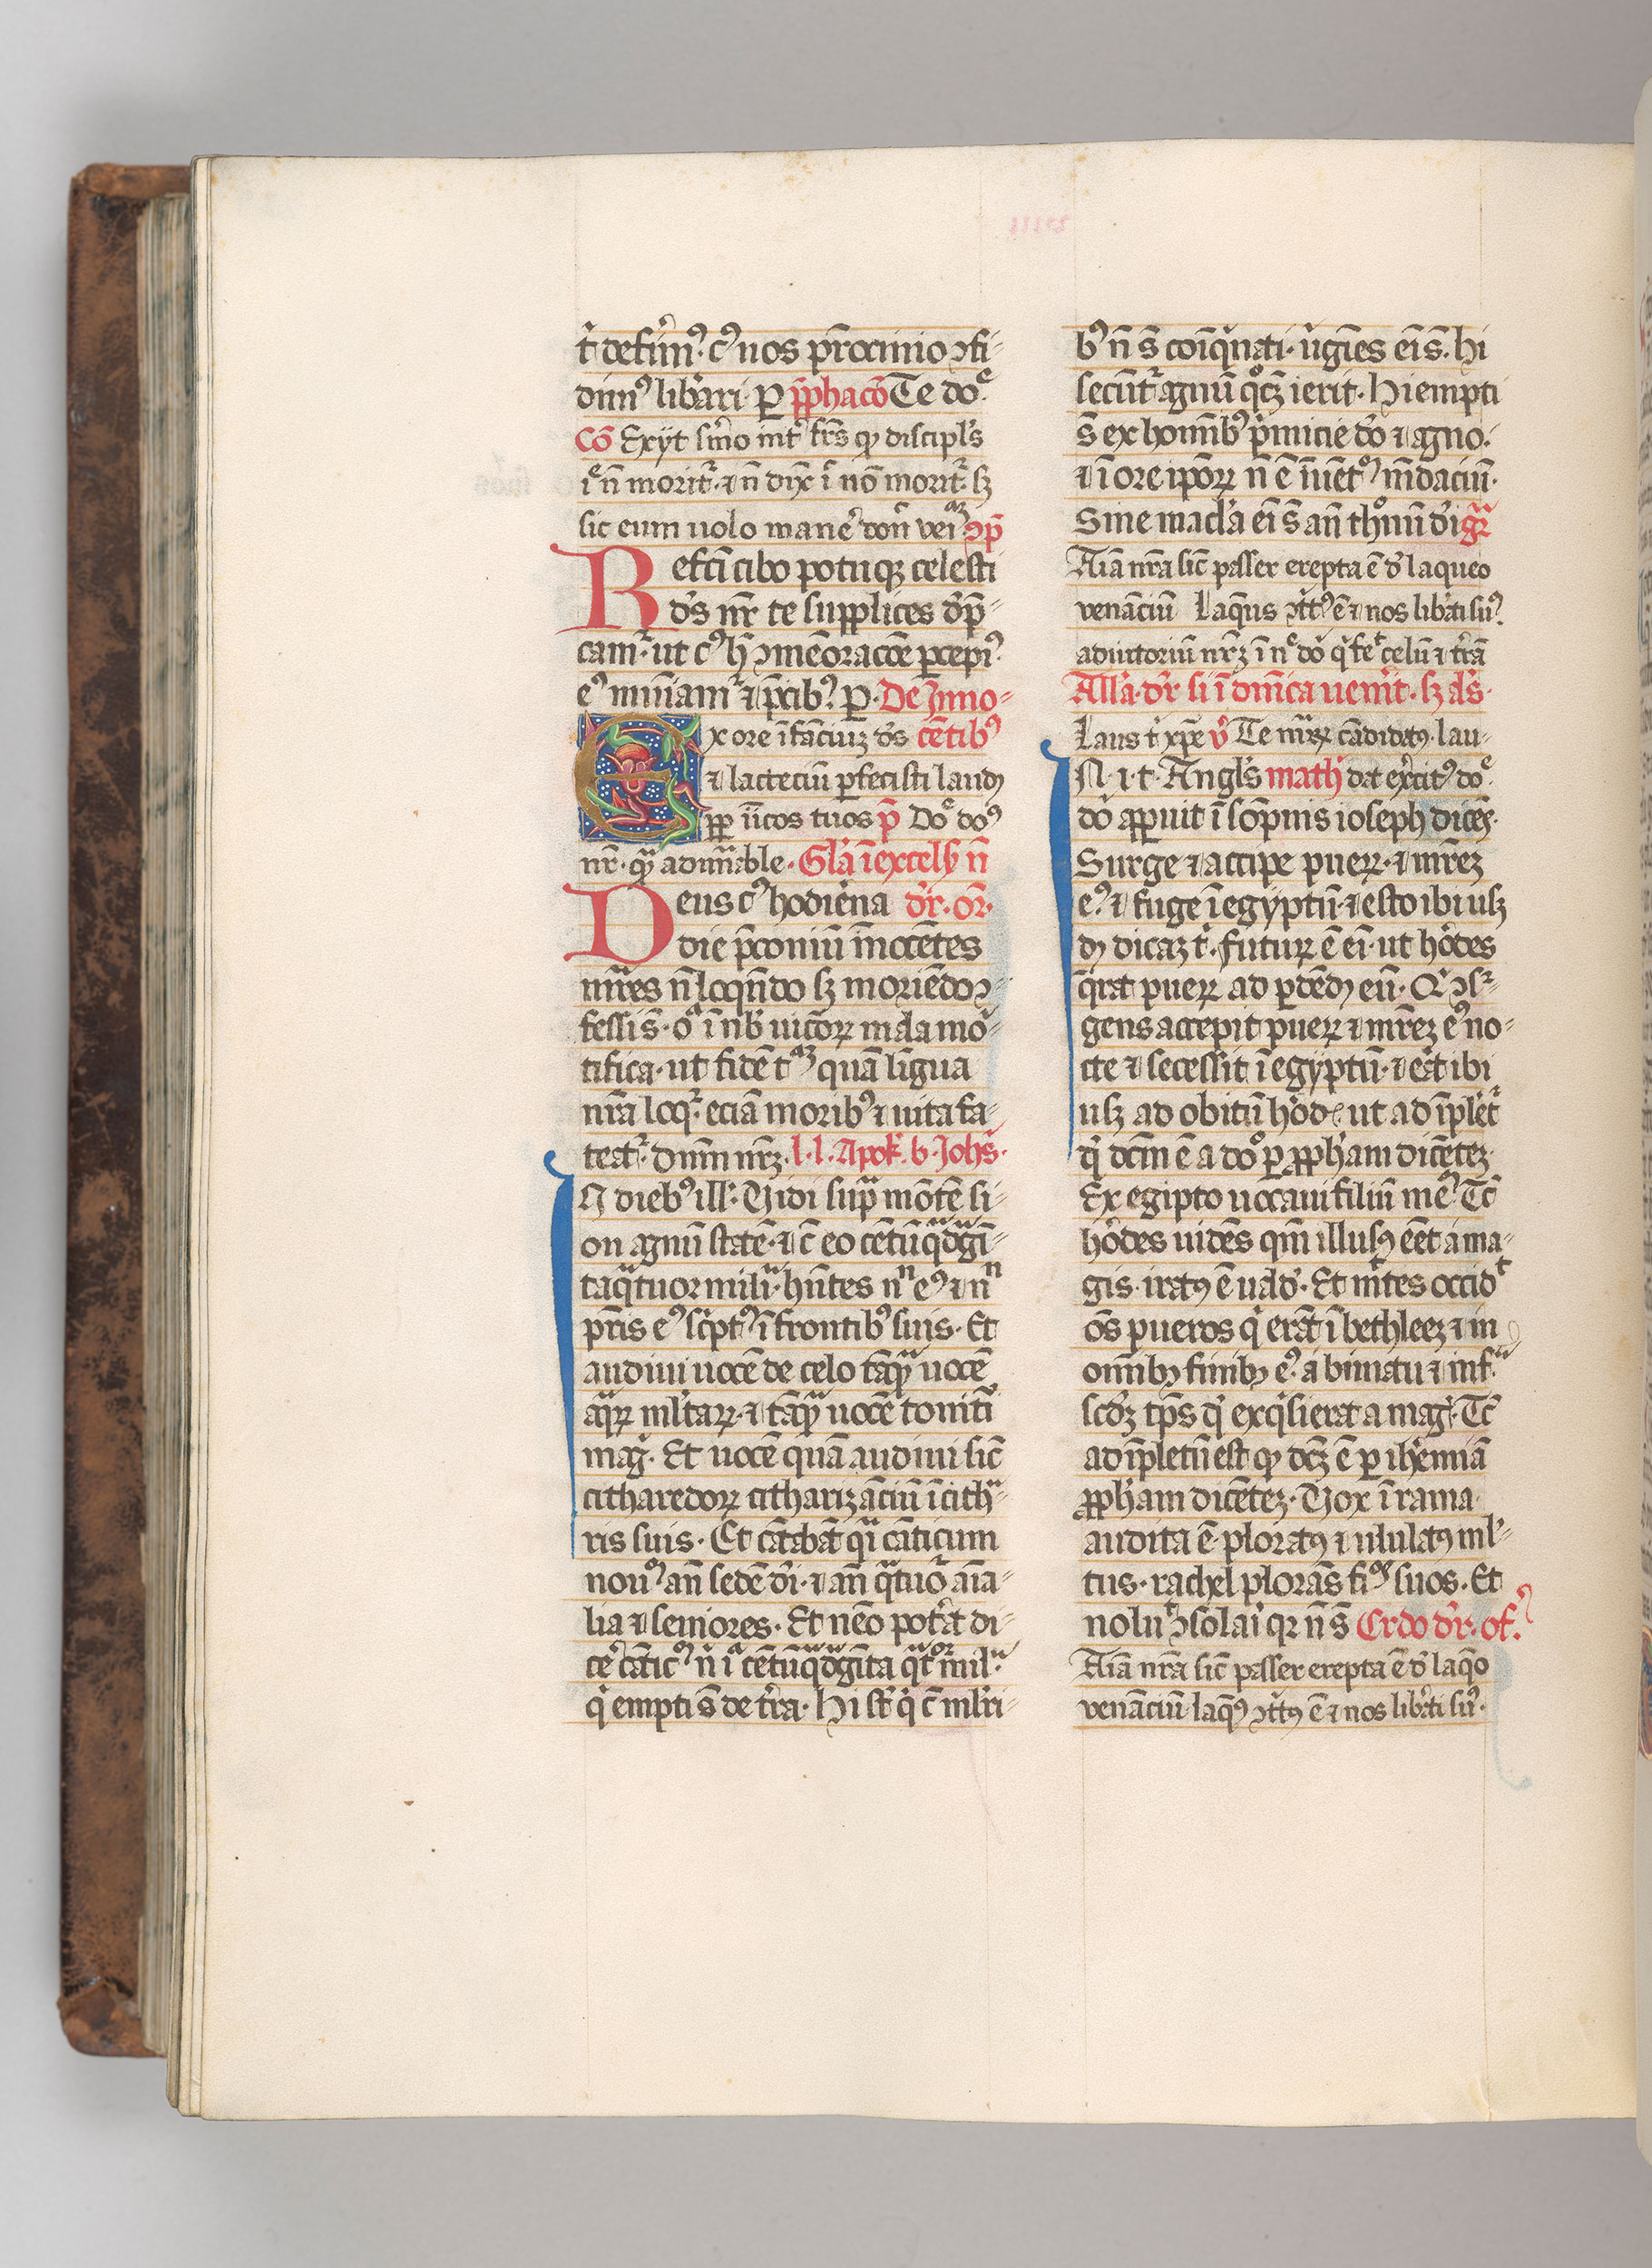 t̑ defim᷒⁹. c⁹ nos pr̄ocinio ↄfi-
dim⁹ libari. ꝑ p̄phacō Te do͛
Cō Exijt s̄mo int̄ fr̄s ꝙ discipl's
i͛ n̄ morit᷑. ⁊ n̄ dix̄ i̇ nō morit᷑. sꝫ
sic eum uolo mane᷑ don̄ vei᷑aꝫ ↄp̄
Refc̄i cibo potuqꝫ celesti
d's nr̄ te supplices dp̄-
cam᷑. ut c⁹ h̄ ↄmeōracōe ꝑcepi⁹
e⁹ mun̄iam᷑ ⁊ p̄cib⁹. ꝑ. De Inno-
Ex ore īfāciuꝫ d's cētib⁹
⁊ lactēciū ꝑfecisti laudꝫ
ꝓp̄ īīcos tuos p̄ Do͛ do⁹
nr̄. qͣꝫ admīable. Gl'a īexcelsꝫ n̄
Deus c⁹ hodi'ena d'r. or̄.
die p̄coniū īnocētes
mr̄es n̄ loqn̄do sꝫ moriēdo ↄ-
fessi s̄. oīa ī nb' uicōꝝ mala mo᷑-
tifica. ut fidē tͣꝫ quā lingua
nr̄a loq᷑. eciā morib⁹ ⁊ uita fa-
teat᷑. Dnm̄ nr̄ꝫ. l. l. Apok'. b. Joh̄s.
In dieb⁹ ill'. Uidi supͣ mōtē si-
on agnū stātē. ⁊ c̄ eo cētū qͣdͣgī-
taqͣtuor miliͣ. hn̄tes nⁿ e⁹ ⁊ nⁿ
pr̄is e⁹ sc̄pt⁹ ī frontib⁹ suis. Et
audiui uocē de celo tāqͣꝫ uocē
aqͣꝝ ml'taꝝ. ⁊ tāqͣꝫ uocē tonit̄i
mag̑. Et uocē quā audiui sic̄
citharedoꝝ citharizāciū ī cithͣ-
ris suis. Et cātabāt qͣi cāticum
nou⁹ an̄ sedē d'i. ⁊ an̄ qͣtuor̄ aīa-
lia ⁊ seniores. Et nēo pot'at di-
ce᷑ cātic⁹ n̄ iͣ cētūqͣdͣgīta qͣtͦr mil'ͣ
q̇ empti s̄ de t'ra. Hi st̄ q̇ c̄ ml'ri-
b⁹ n̄ s̄ coīq̇nati. ūgīes eī s̄. hi
secūt᷑ agnū qͦcꝫ ierit. Hi empti
s̄ ex homīb⁹ p̄micie d'o ⁊ agno.
⁊ ī ore ip̄oꝝ n̄ ē īuēt⁹ mēdaciū.
Sine macl'a eī s̄ an̄ thͦnū d'i gr̄
Aīa nr̄a sic̄ passer erepta ē d' laqueo
venāciū Laqu̇s ↄt̄t⁹ ē ⁊ nos libāti su⁹.
adiutoriū nr̄ꝫ ī n͛ do q̇ fe͛ celū ⁊ t'rā
All'a. d'r si ī dn̄ica uen̄it. sꝫ al's.
Laus t̑ xp̄e v̄ Te mr̄ꝝ cādidatꝰ. lau-
IN. i. t. Angl's math' dat exc̄it⁹ do͛
do apꝑuit ī sōpnis ioseph dicēs.
Surge ⁊ accipe pueꝝ. ⁊ mr̄eꝫ
e⁹. ⁊ fuge ī egyptū. ⁊ esto ibi usꝫ
dꝫ dicaꝫ t̑. futuꝝ ē eī. ut hōdes
q̄rat pueꝝ ad ꝑdēdꝫ eū. Q᷑ ↄsr̄-
gens accepit pueꝝ ⁊ mr̄eꝫ e⁹ no-
cte ⁊ secessit ī egyptū. ⁊ eāt ibi
usꝫ ad obitū hōd' ut adīplēt᷑
q̇ dcm̄ ē a doͦ ꝑ ꝓph'am dicētēꝫ.
Ex egipto uocaui filiū me⁹. Tc̄
hōdes uidēs qm̄ illusꝰ eēt a ma-
gis. iratꝰ ē uald'. Et mīt̄es occidͭ
ōs pueros q̇ erāt ī bethleeꝫ ⁊ in
omībꝫ finibꝫ e⁹. a bimatu ⁊ infͣ
scd'ꝫ tp̄s q̇ exq̇sierat a mag̑. Tc̄
adīpletū est ꝙ dc̄ꝫ ē ꝑ ih'emiā
ꝓph'am dicētēꝫ. Uox ī rama
audita ē. ploratꝰ ⁊ ululatꝰ ml'-
tus. rachel plorās fiͦˢ suos. Et
noluͭ ↄsolai᷑ qꝛ n̄ s̄ Crdo d'r. of⁹.
Aīa nr̄a sic̄ passer erepta ē d' laq̄o
venāciū laq̄⁹ ↄt̄tꝰ ē ⁊ nos libāti su⁹.